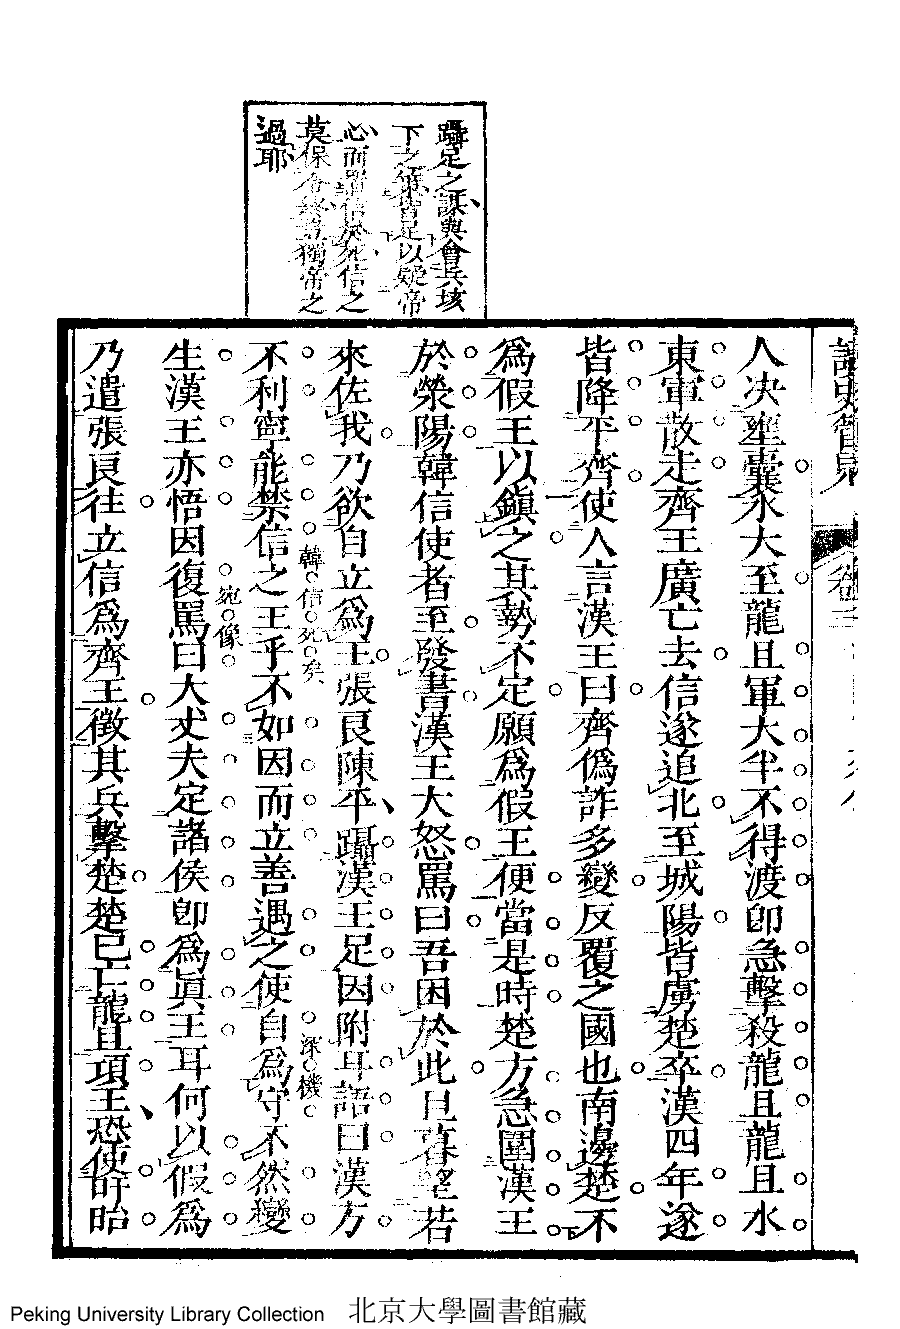 躡足之謀與會兵垓
下之策皆足以疑帝
心而置信於死信之
莫保令終豈獨帝之
過耶
讀史管見 卷三
人決壅囊水大至龍且軍大半不得渡卽急擊殺龍且龍且水
東軍散走齊王廣亡去信遂追北至城陽皆虜楚卒漢四年遂
皆降平齊使人言漢王曰齊僞詐多變反覆之國也南邊楚不
爲假王以鎭之其勢不定願爲假王便當是時楚方急圍漢王
於滎陽韓信使者至發書漢王大怒罵曰吾困於此旦暮望若
來佐我乃欲自立爲王張良陳平躡漢王足因附耳語曰漢方
韓信死矣
深機
不利寧能禁信之王乎不如因而立善遇之使自爲守不然變
宛像
生漢王亦悟因復罵曰大丈夫定諸侯卽爲眞王耳何以假爲
乃遣張良往立信爲齊王徵其兵擊楚楚已亡龍且項王恐使盱眙
Peking University Library Collection 北京大學圖書館藏